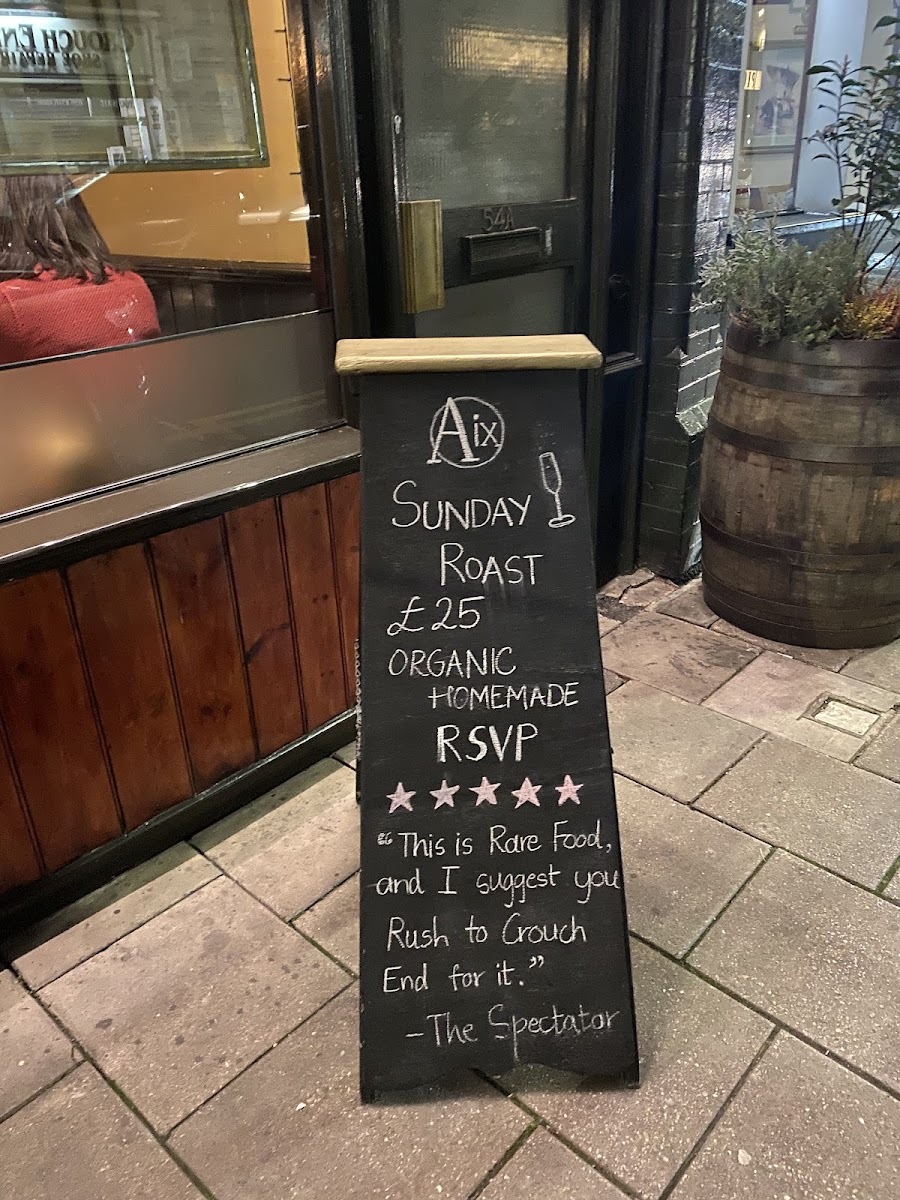 CROUCH END
SHOE REPAIRS
54A
19
Aix
SUNDAY
ROAST
£25
ORGANIC
HOMEMADE
RSVP
"This is Rare Food,
and I suggest you
Rush to Crouch
End for it."
-The Spectator